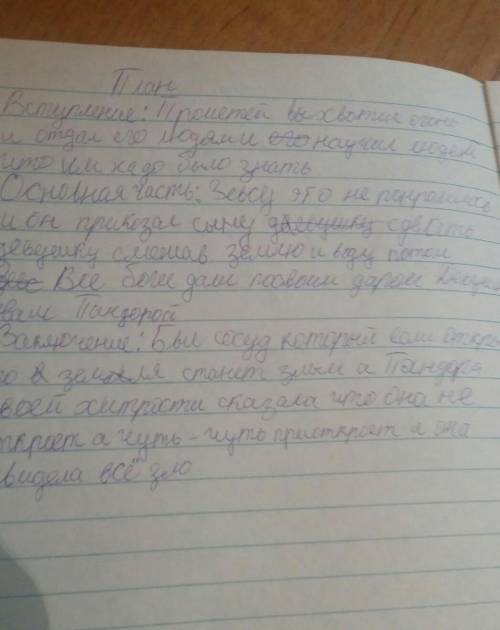 План
Вступление: Прометей выхватил огонь
и отдал его людям и научил людей
что им надо было знать
Основная часть: Зевсу это не понравилось
и он приказал сыну девушку сделать
девушку смешав землю и воду потом
Все боги дали по своим дарам
звали Пандорой
Заключение: Был сосуд который если откры
то земля станет злым а Пандора
своей хитрости сказала что она не
ткроет а чуть-чуть приоткроет и она
видела всё зло